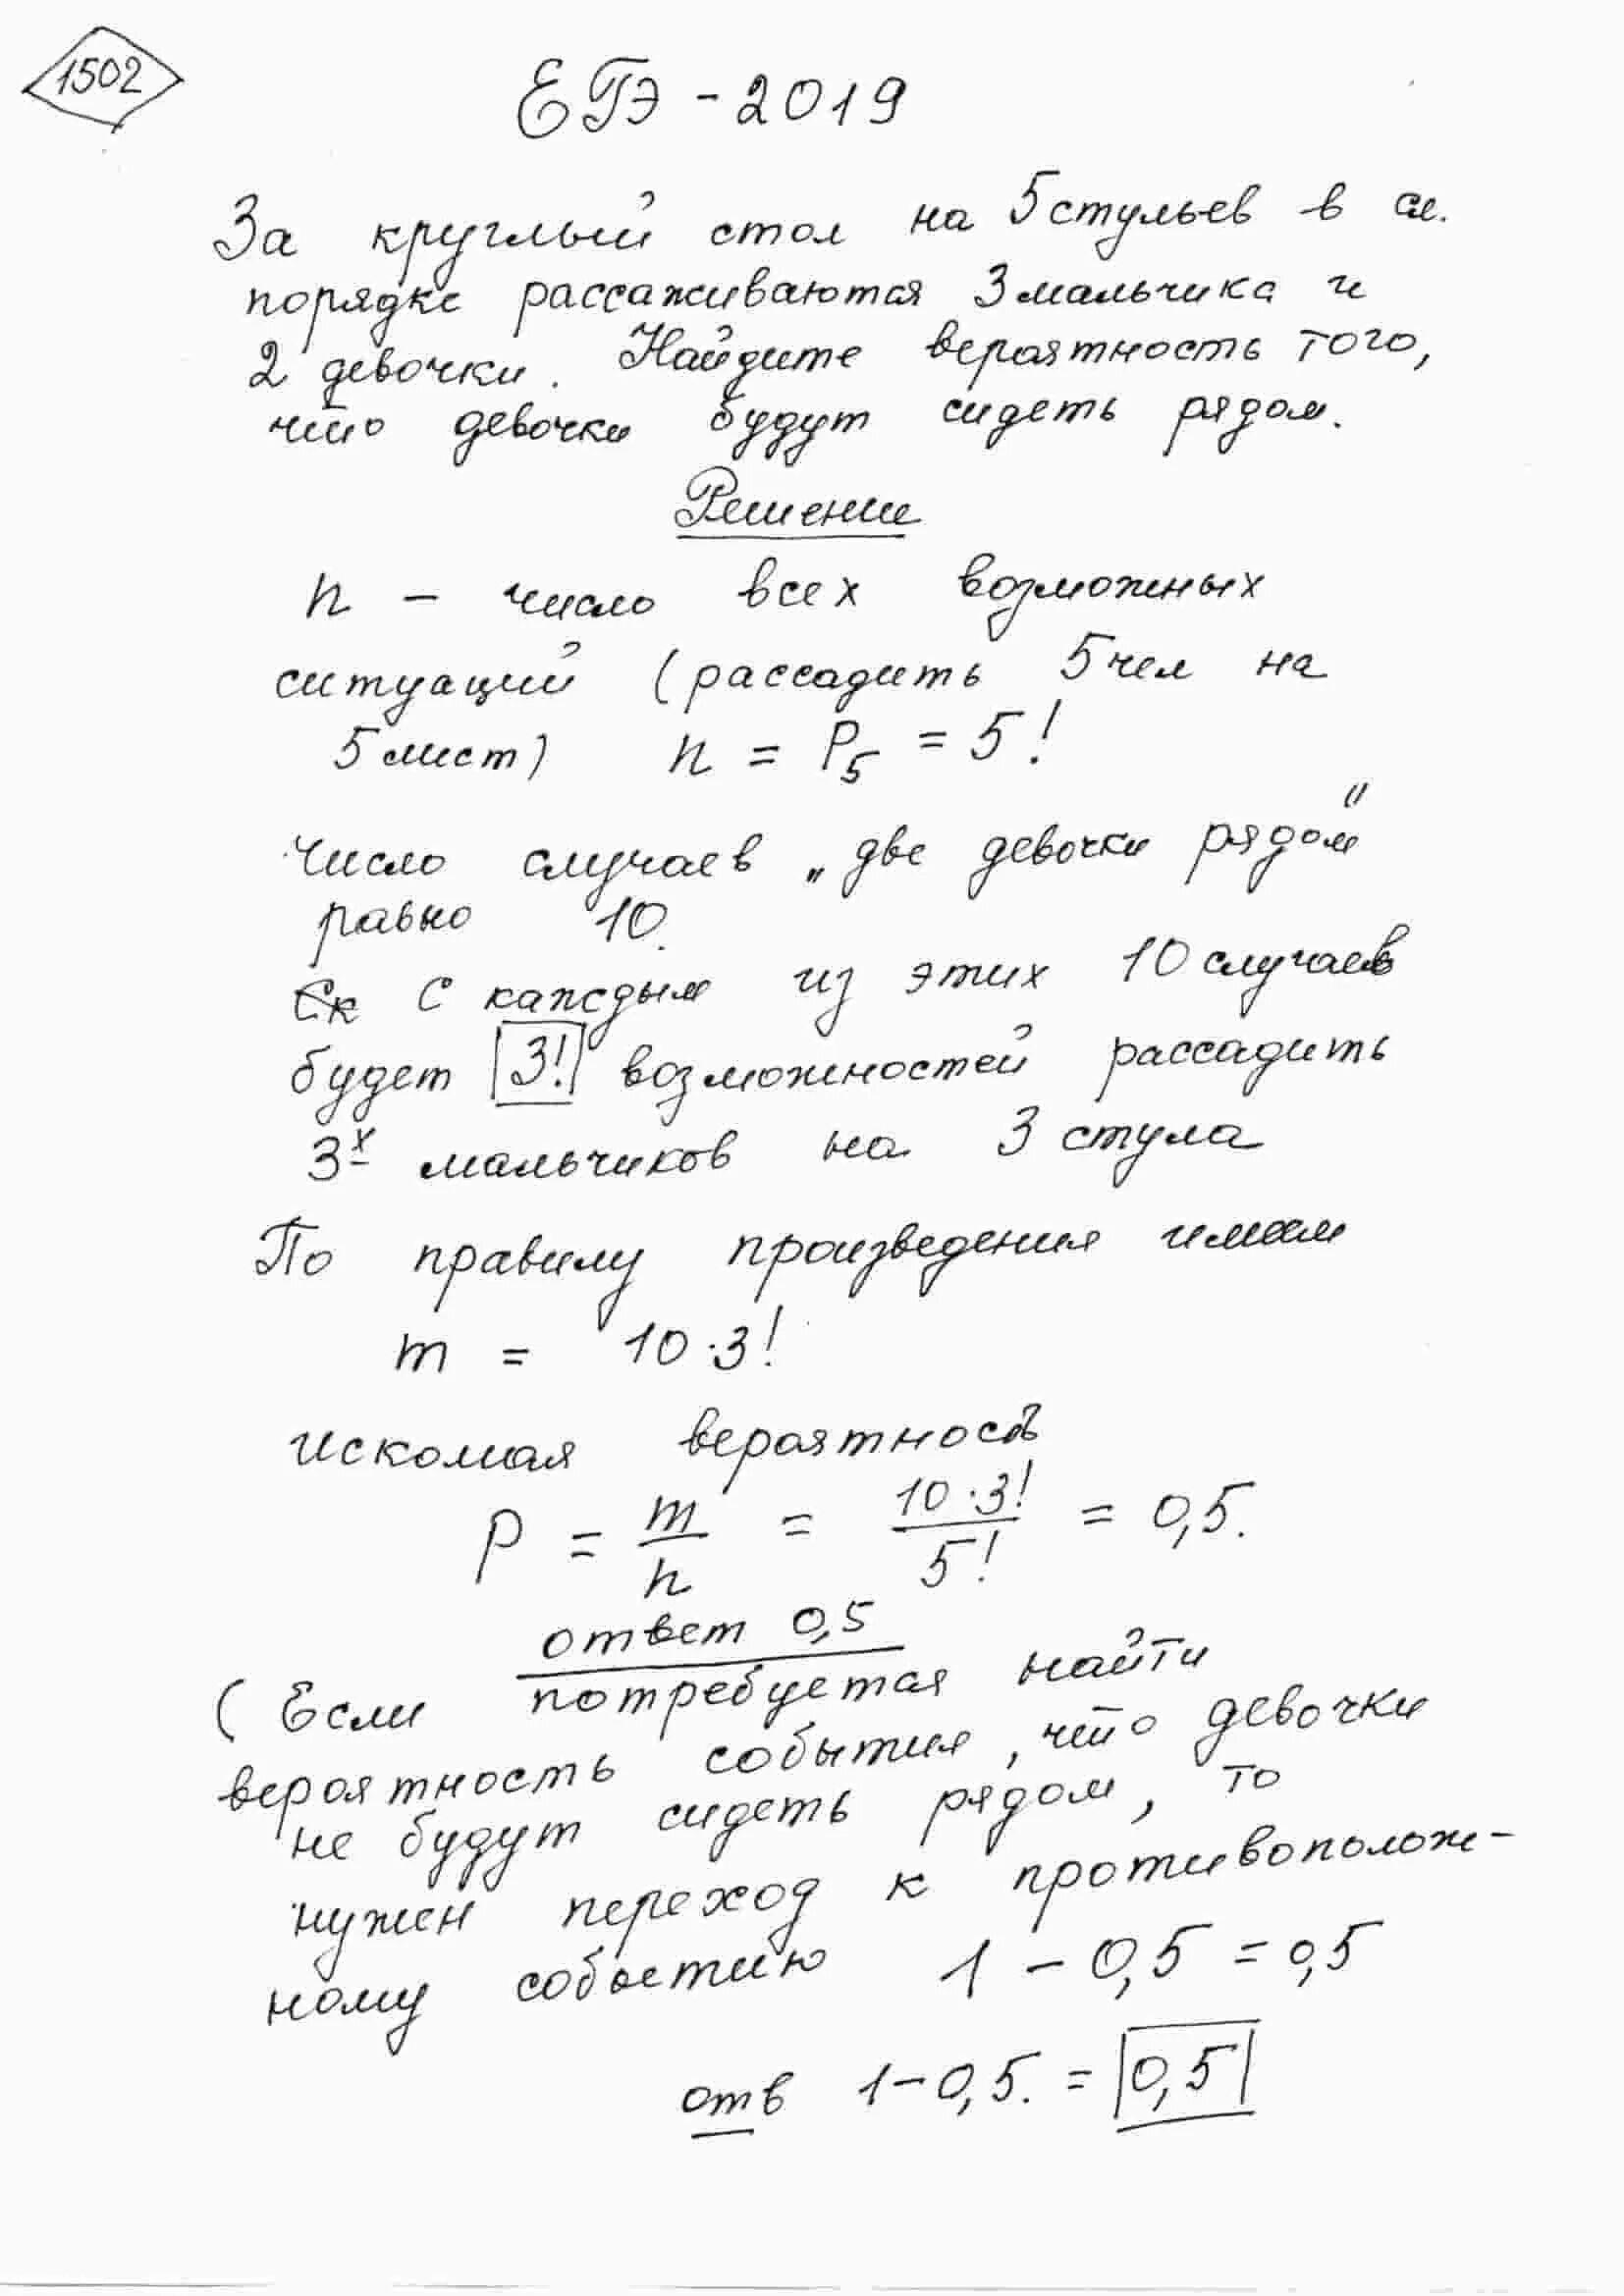 1502
ЕГЭ - 2019
За круглый стол на 5 стульев в сл.
порядке рассаживаются 3 мальчика и
2 девочки. Найдите вероятность того,
что девочки будут сидеть рядом.
Решение
n - число всех возможных
ситуаций (рассадить 5 чел на
5 мест) n = P₅ = 5!
Число случаев „две девочки рядом"
равно 10.
С каждым из этих 10 случаев
будет 3! возможностей рассадить
3х мальчиков на 3 стула
По правилу произведения имеем
m = 10·3!
Искомая вероятность
P = m/n = 10·3!/5! = 0,5.
ответ 0,5
(Если потребуется найти
вероятность события, что девочки
не будут сидеть рядом, то
нужен переход к противополож-
ному событию 1 - 0,5 = 0,5
отв 1-0,5. = 0,5